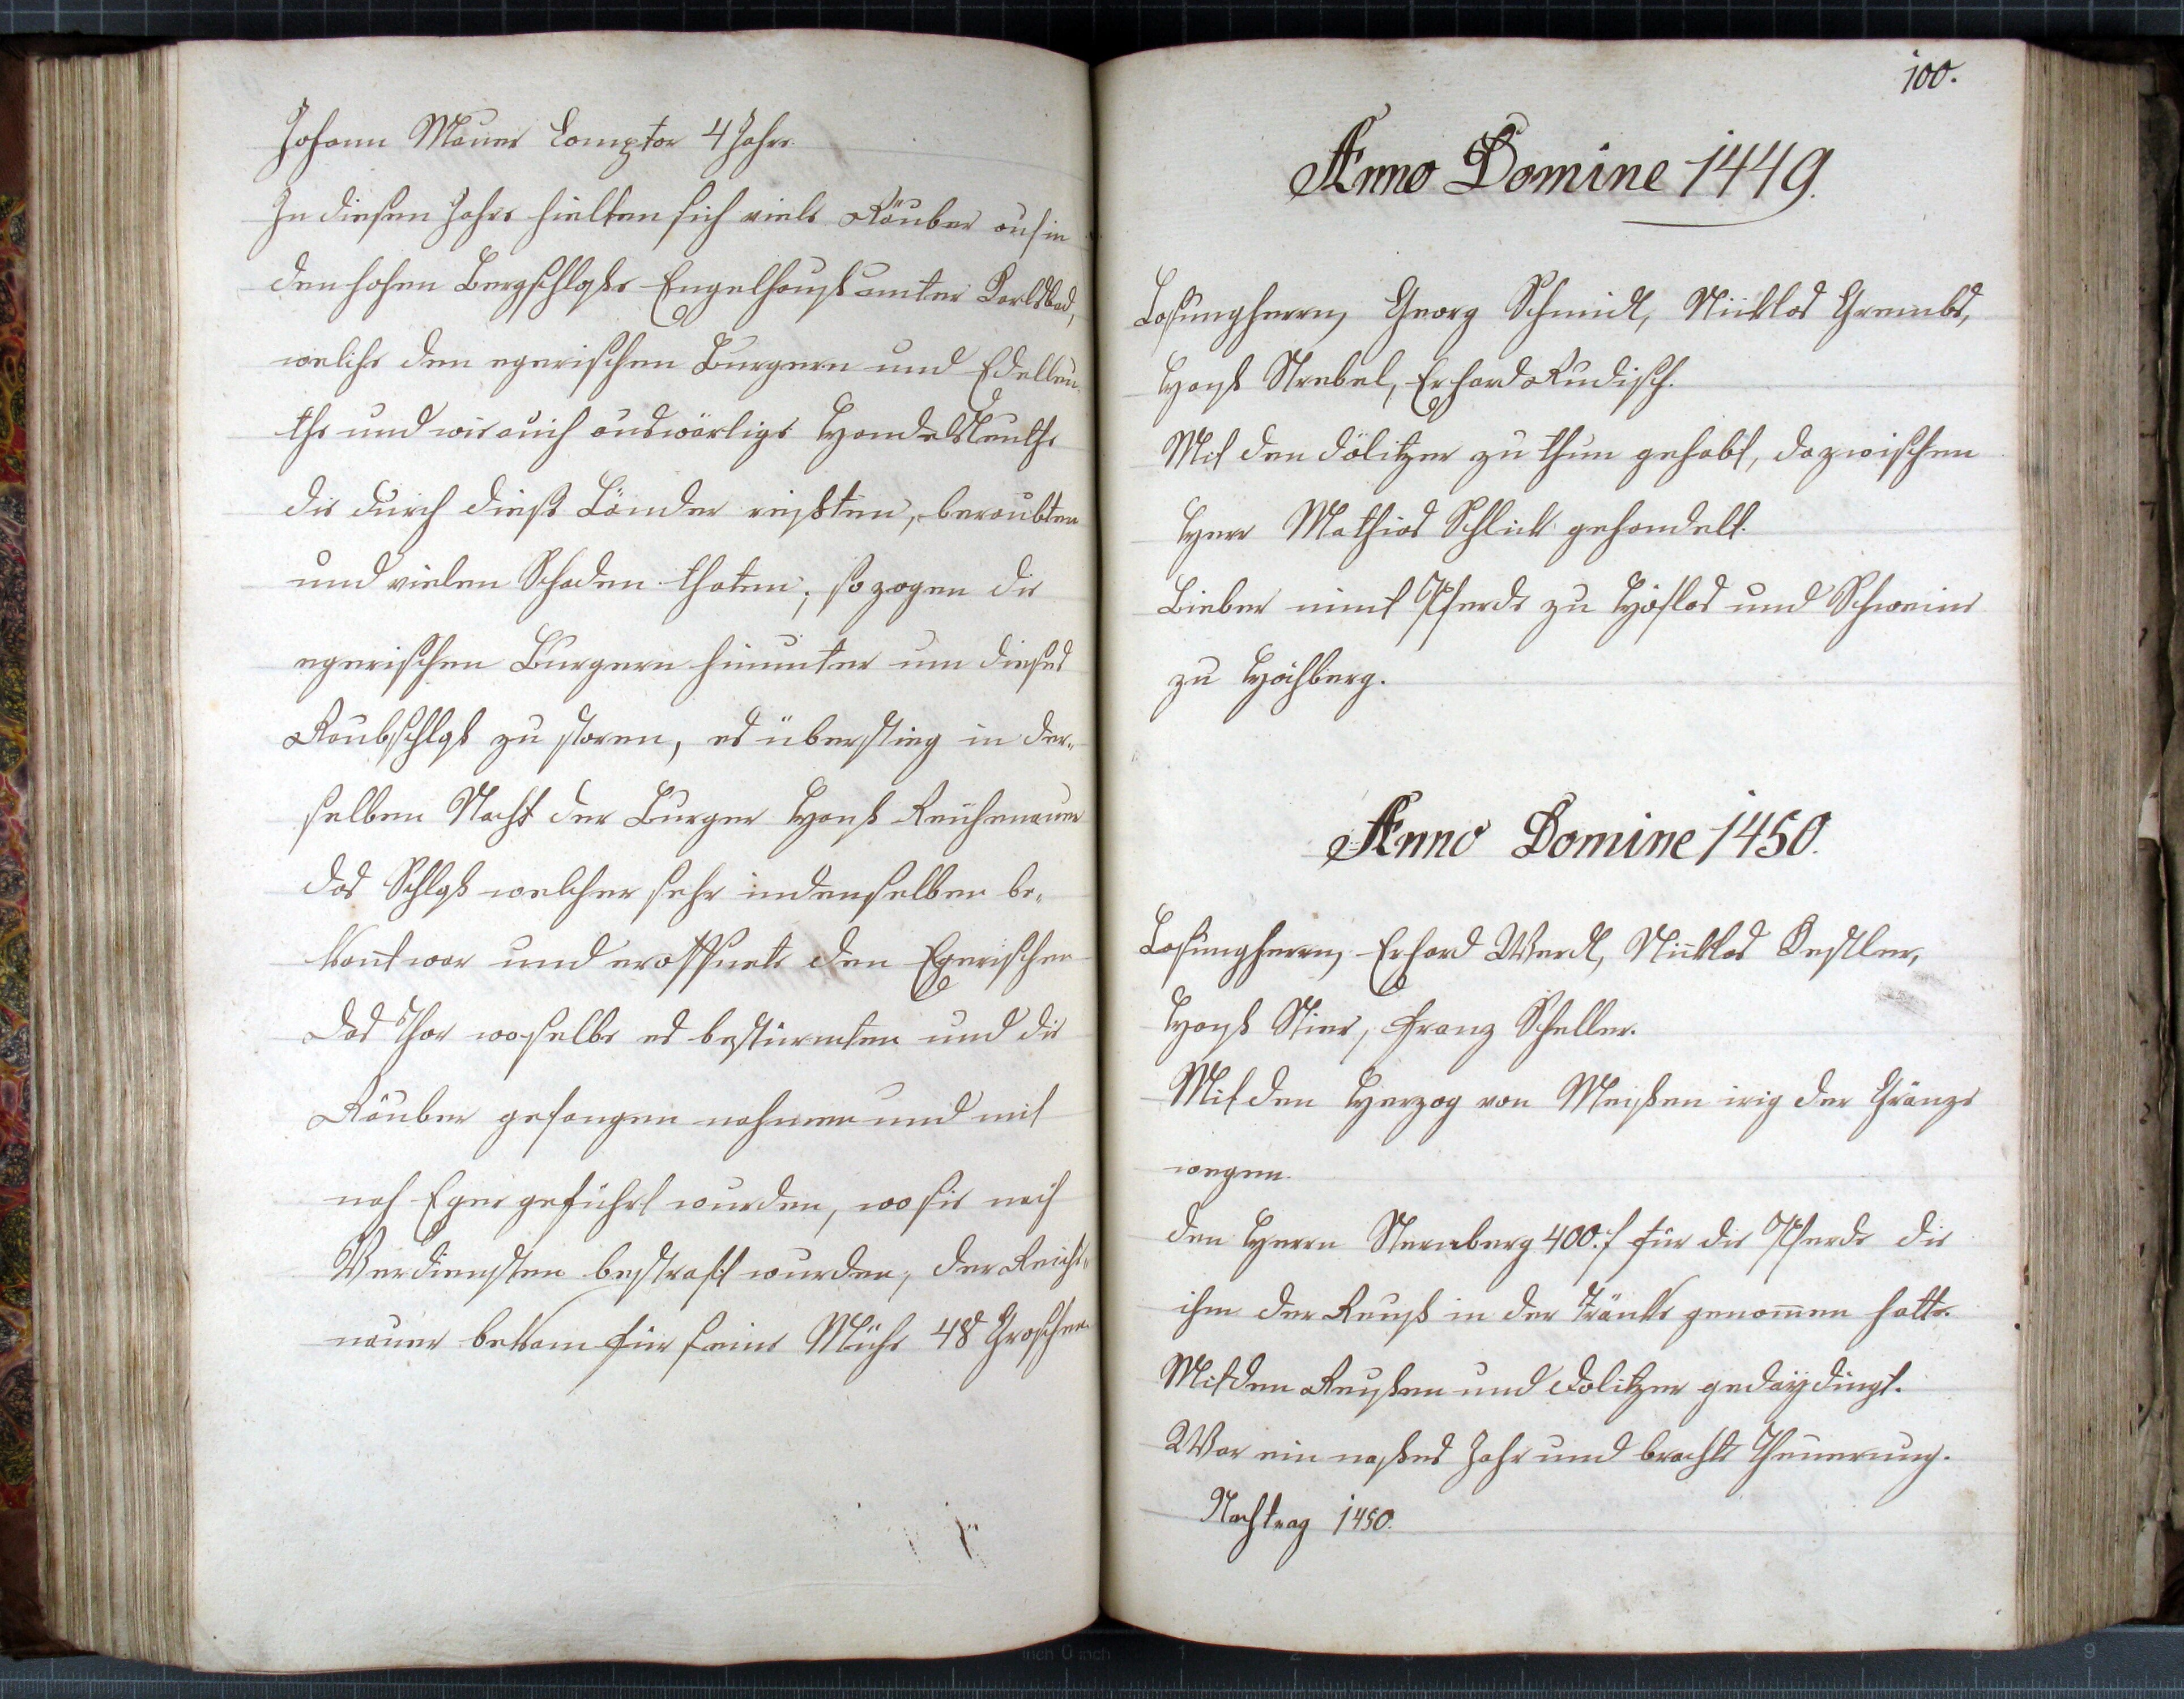 Johann Mauner Comptor 4 Jahre.
In diesen Jahre hielten sich viele Räuber auf in
den hohen Bergschloße Engelhauß unter Karlsbad,
welche den egerischen Burgern und Edelleu-
the und wie auch auswärtige Handelsleuthe
die durch dieße Länder reißten, beraubten
und vielen Schaden thaten; so zogen die
egerischen Bürgern hinunter um dieses
Raubschloß zu storen, es überstieg in der-
selben Nacht der Burger Hanß Reichenauer
das Schloß welcher sehr in denselben be-
kant war und eroffnete den Egerischen
das Thor woselbe es bestürmten und die
Räuber gefangen nahmen und mit
nach Eger geführt wurden, wo sie nach
Verdiensten bestraft wurden, der Reiche-
nauer bekam für seine Mühe 48 Groschen.
100.
Anno Domine 1449.
Losungherrn, Georg Schmidl, Nicklas Grembs,
Hanß Strebel, Erhard Rudisch.
Mit den Dölitzer zu thun gehabt, dazwischen
Herr Mathias Schlick gehandelt.
Bieber nimt Pferde zu Höflas und Schweine
zu Höchberg.
Anno Domine 1450.
Losungherrn, Erhard Werdl, Nicklas Kestler,
Hanß Stier, Franz Scheller.
Mit den Herzog von Meißen irig der Gränze
wegen.
den Herrn Sternberg 400. f für die Pferde die
ihm der Reuß in der Tränke genomen hatte.
Mit den Reußen und Dolitzer gedaÿdingt.
War ein naßes Jahr und brachte Theuerung.
Nachtrag 1450.